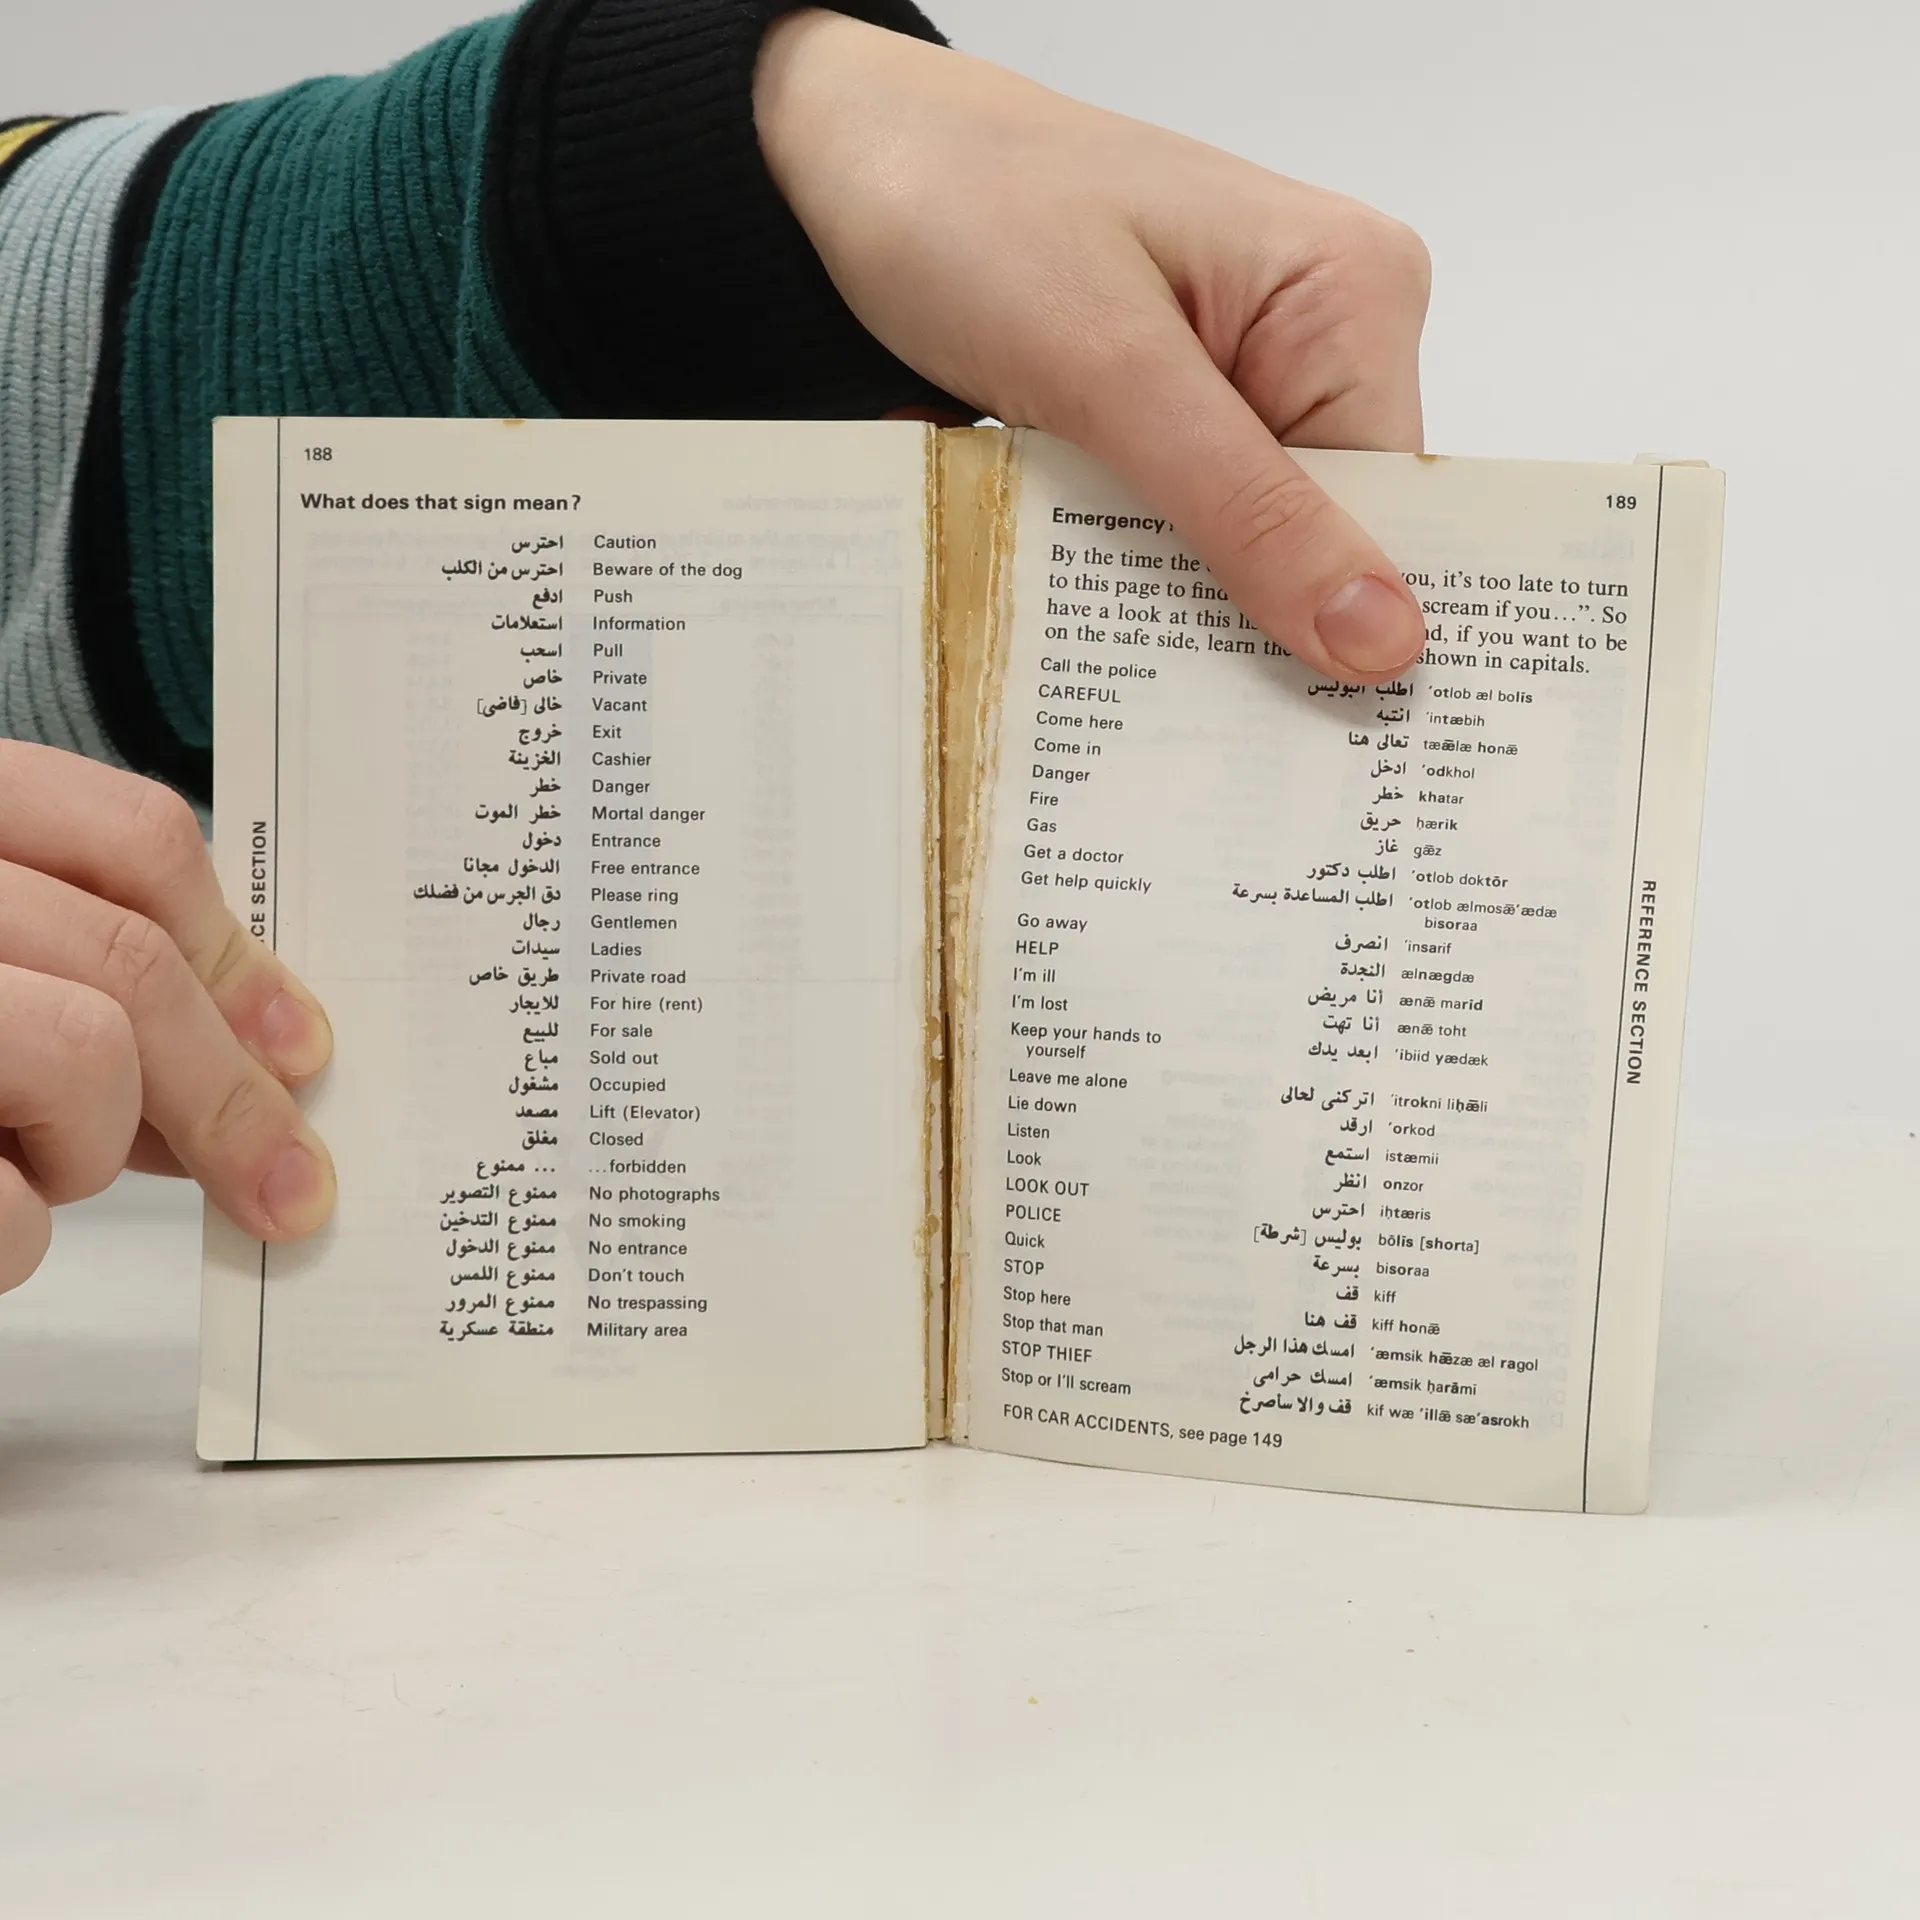 188
What does that sign mean?
احترس Caution
احترس من الكلب Beware of the dog
ادفع Push
استعلامات Information
اسحب Pull
خاص Private
خالى [فاضى] Vacant
خروج Exit
الخزينة Cashier
خطر Danger
خطر الموت Mortal danger
دخول Entrance
الدخول مجانا Free entrance
دق الجرس من فضلك Please ring
رجال Gentlemen
سيدات Ladies
طريق خاص Private road
للايجار For hire (rent)
للبيع For sale
مباع Sold out
مشغول Occupied
مصعد Lift (Elevator)
مغلق Closed
... ممنوع ...forbidden
ممنوع التصوير No photographs
ممنوع التدخين No smoking
ممنوع الدخول No entrance
ممنوع اللمس Don't touch
ممنوع المرور No trespassing
منطقة عسكرية Military area
SECTION
189
Emergency
By the time the you, it's too late to turn
to this page to find scream if you...". So
have a look at this if you want to be
on the safe side, learn shown in capitals.
Call the police اطلب البوليس 'otlob æl bolis
CAREFUL انتبه 'intæbih
Come here تعالى هنا tæǣlæ honǣ
Come in ادخل 'odkhol
Danger خطر khatar
Fire حريق ḥærik
Gas غاز gǣz
Get a doctor اطلب دكتور 'otlob doktōr
Get help quickly اطلب المساعدة بسرعة 'otlob ælmosǣ'ædæ
bisoraa
Go away انصرف 'insarif
HELP النجدة ælnægdæ
I'm ill أنا مريض ænǣ marid
I'm lost أنا تهت ænǣ toht
Keep your hands to ابعد يدك 'ibiid yædæk
yourself
Leave me alone اتركنى لحالى 'itrokni liḥǣli
Lie down ارقد 'orkod
Listen استمع istæmii
Look انظر onzor
LOOK OUT احترس iḥtæris
POLICE بوليس [شرطة] bōlis [shorta]
Quick بسرعة bisoraa
STOP قف kiff
Stop here قف هنا kiff honǣ
Stop that man امسك هذا الرجل 'æmsik hǣzæ æl ragol
STOP THIEF امسك حرامى 'æmsik ḥarāmi
Stop or I'll scream قف والا سأصرخ kif wæ 'illǣ sæ'asrokh
FOR CAR ACCIDENTS, see page 149
REFERENCE SECTION